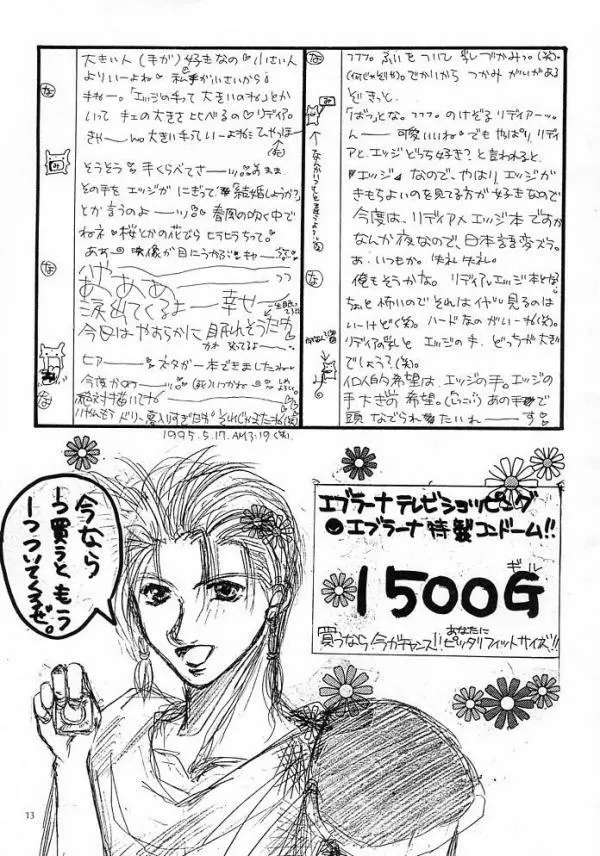 大きい人(手が)好きなの♥小さい人
よりいーよね♥私手が小さいから
すねー。「エッジの手って大きいのね」とか
いって手の大きさ比べるの♡リディア。
きゃー!no大きい手っていーよねにひゃっほー
そうそう♥手くらべてさー。そのまま
その手をエッジがにぎって♥「結婚しようか?」
とか言うのよーッ♥春風の吹く中で
ねネ♥桜とかの花びらヒラヒラちって♥。
ああっ映像が目にうかぶ♥キャー
ハや
あああ
涙出てくるよー幸せ
今日はやすらかに眠れそうだわ
ヒアーネタが一本できましたねー
絶対描いてね
1995.5.17.AM3:19(笑)
なんかいつもと違うようなー
フフフ。ふいをついて乳づかみっ。(笑)。
(何じゃそりゃ)。でかいからつかみがいがある
ぞきっと。
「ばっ」とな。フフフ。のけぞるリディアーッ。
んー可愛いいね♥でもやっぱりリディ
アとエッジどっち好き?と言われると
「エッジ」なので、やはりエッジが
きもちよいのを見てる方が好きなので
今度は、リディア×エッジ本ですか
なんか夜なので、日本語変ズラ。
あ、いつもか。失礼失礼。
俺もそうかな。リディア×エッジ本となる
ちょと怖いのでそれはイヤ
いーけど(笑)。ハードなのがいーね(笑)。
リディアの乳とエッジの手、どっちが大き
でしょう?(笑)。
個人的希望は、エッジの手。エッジの
手大きめ希望。(しつこい)あの手♥で
頭なでられ♥たいれーーす
エブラーナテレビショッピング
●エブラーナ特製コンドーム!!
ギル
1500G
あなたに
買うなら今がチャンス!!ピッタリフィットサイズ!!
今なら
一つ買うともう
一つついてくるぜ。
13